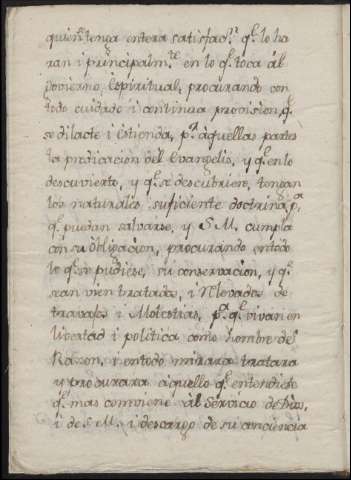 quien tenga entera satisfacn. q.e lo ha
ran i principalm.te en lo q.e toca âl
Govierno Espiritual, procurando con
todo cuidado i continua provision, q.e
se dilacte i estienda, p.r âquellas partes
la predicacion del Evangelio, y q.e en lo
descuvierto, y q.e se descubriere, tengan
los naturales suficiente doctrina, p.a
q.e puedan salvarse, y S. M. cumpla
con su Obligacion, procurando en todo
lo q.e se pudiere, su conservacion, y q.e
sean vien tratados, i relevados de
travajos i Molestias, p.a q.e vivan en
livertad i politica como hombre de
Razon, i en todo mirara tratara
y procurara âquello q.e entendiese
q.e mas combiene âl Servicio de Dios,
i de S. M. i descargo de su conciencia